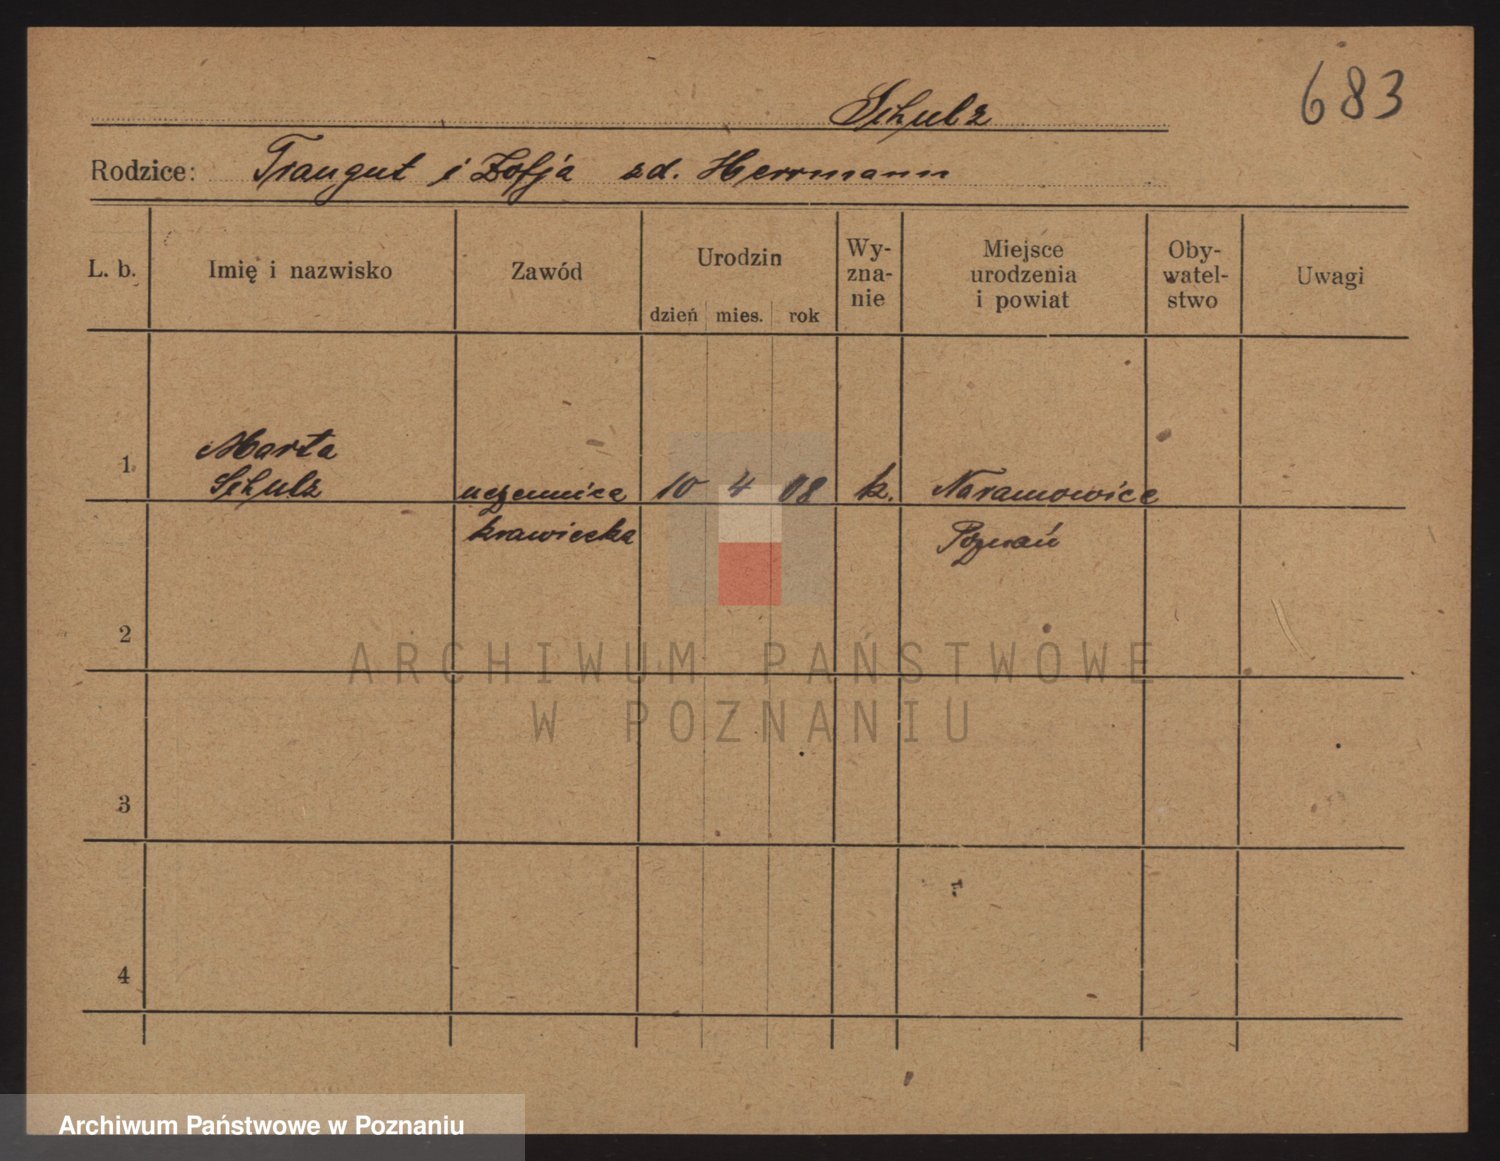 683
Schulz
Rodzice: Traugut i Zofja zd. Herrmann
L. b. Imię i nazwisko Zawód Urodzin Wy-zna-nie Miejsce urodzenia i powiat Oby-watel-stwo Uwagi
dzień mies. rok
Marta
1. Schulz uczennica 10 4 08 k. Naramowice
krawiecka Poznań
2
ARCHIWUM PAŃSTWOWE
W POZNANIU
3
4
Archiwum Państwowe w Poznaniu